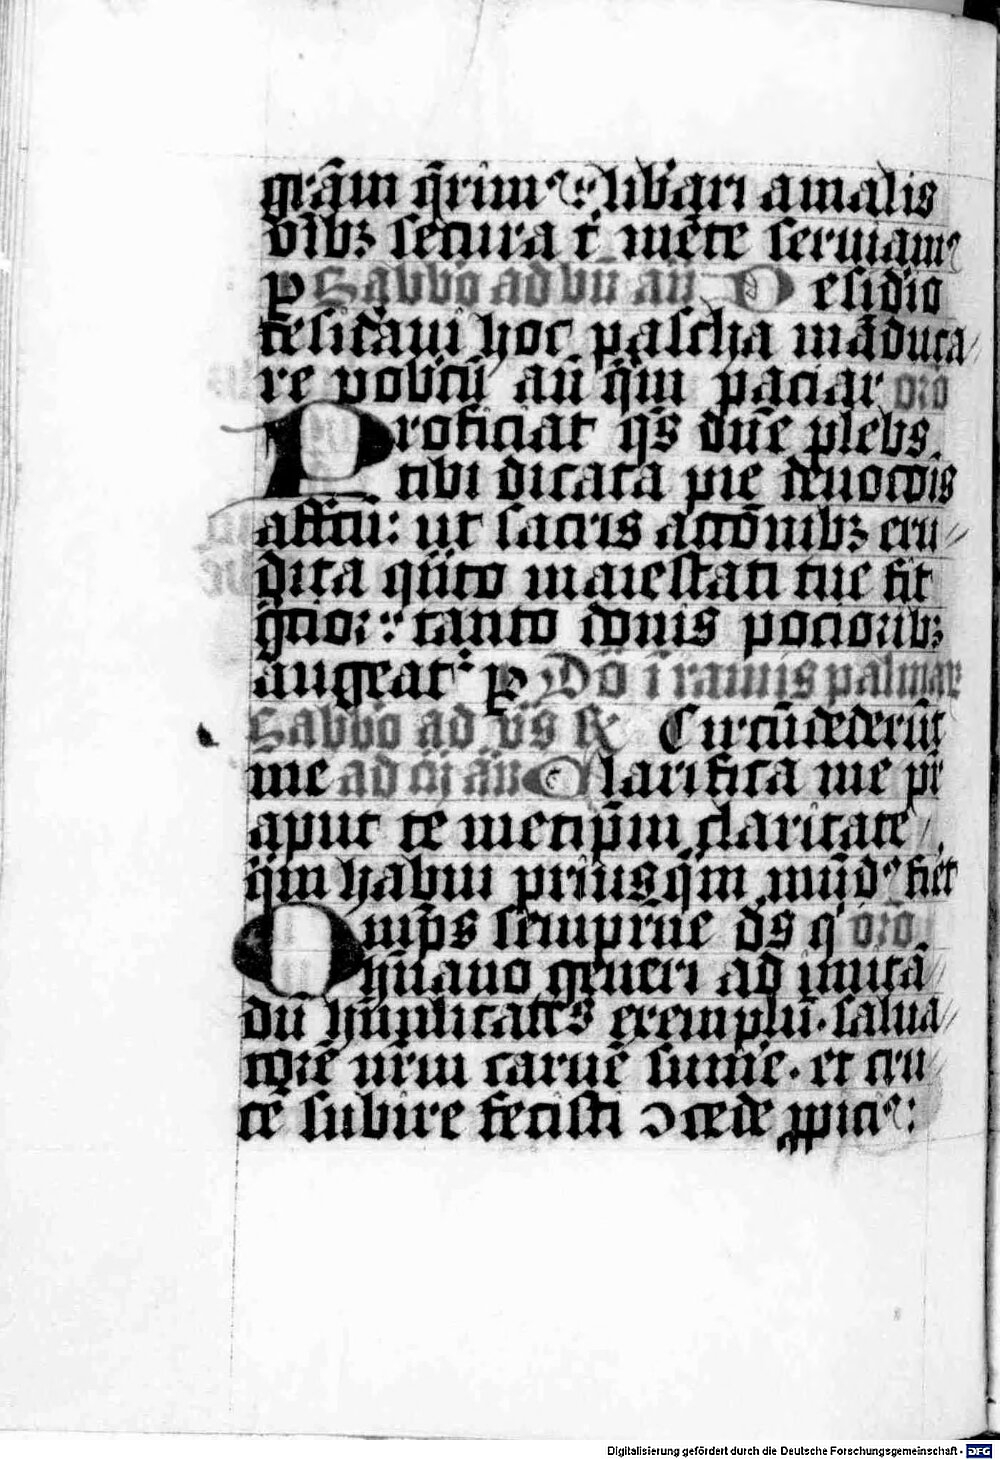 gr̄am q̄rim⁹ ⁊ lib̓ari a malis
oīb⁊ secura t' mēte seruiam⁹
p Sabb̄o ad bn̄ an̄ Desid̓io
desid̓aui hoc pascha māduca
re vob̄cū an̄ q̄m paciar or̄o
Proficiat q̄s dn̄e plebs
tibi dicata pie deuoc̄ōis
aff̄tū: ut sacris acc̄ōnib⁊ eru
dita q̄nto maiestati tue fit
ḡcior: tanto donis pociorib⁊
augeat' p Dō ī ramis palmar
Sabb̄o ad v̄s R Circūdederūt
me ad ⁊ an̄ Clarifica me pr̄
aput te metip̄m claritate
q̄m habui prius q̄m mūd⁹ fiet
Om̄ps semp̄rne ds q' or̄o
hūano generi ad imitā
dū hūilitatis exemplū. salua
torē nr̄m carnē sum̄e. et cru
cē subire fecisti ɔcede p̄pici⁹:
Digitalisierung gefördert durch die Deutsche Forschungsgemeinschaft - DFG